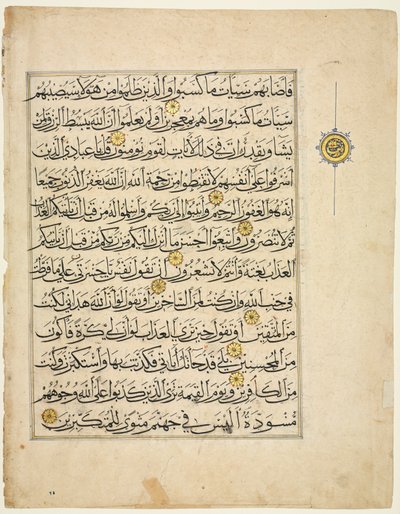 فاصابهم سيئات ما كسبوا والذين ظلموا من هؤلاء سيصيبهم
سيئات ما كسبوا وما هم بمعجزين اولم يعلموا ان الله يبسط الرزق لمن
يشاء ويقدر ان في ذلك لآيات لقوم يؤمنون قل يا عبادي الذين
اسرفوا على انفسهم لا تقنطوا من رحمة الله ان الله يغفر الذنوب جميعا
انه هو الغفور الرحيم وانيبوا الى ربكم واسلموا له من قبل ان يأتيكم العذاب
ثم لا تنصرون واتبعوا احسن ما انزل اليكم من ربكم من قبل ان يأتيكم
العذاب بغتة وانتم لا تشعرون ان تقول نفس يا حسرتى على ما فرطت
في جنب الله وان كنت لمن الساخرين او تقول لو ان الله هداني لكنت
من المتقين او تقول حين ترى العذاب لو ان لي كرة فاكون
من المحسنين بلى قد جاءتك آياتي فكذبت بها واستكبرت وكنت
من الكافرين ويوم القيمة ترى الذين كذبوا على الله وجوههم
مسودة اليس في جهنم مثوى للمتكبرين